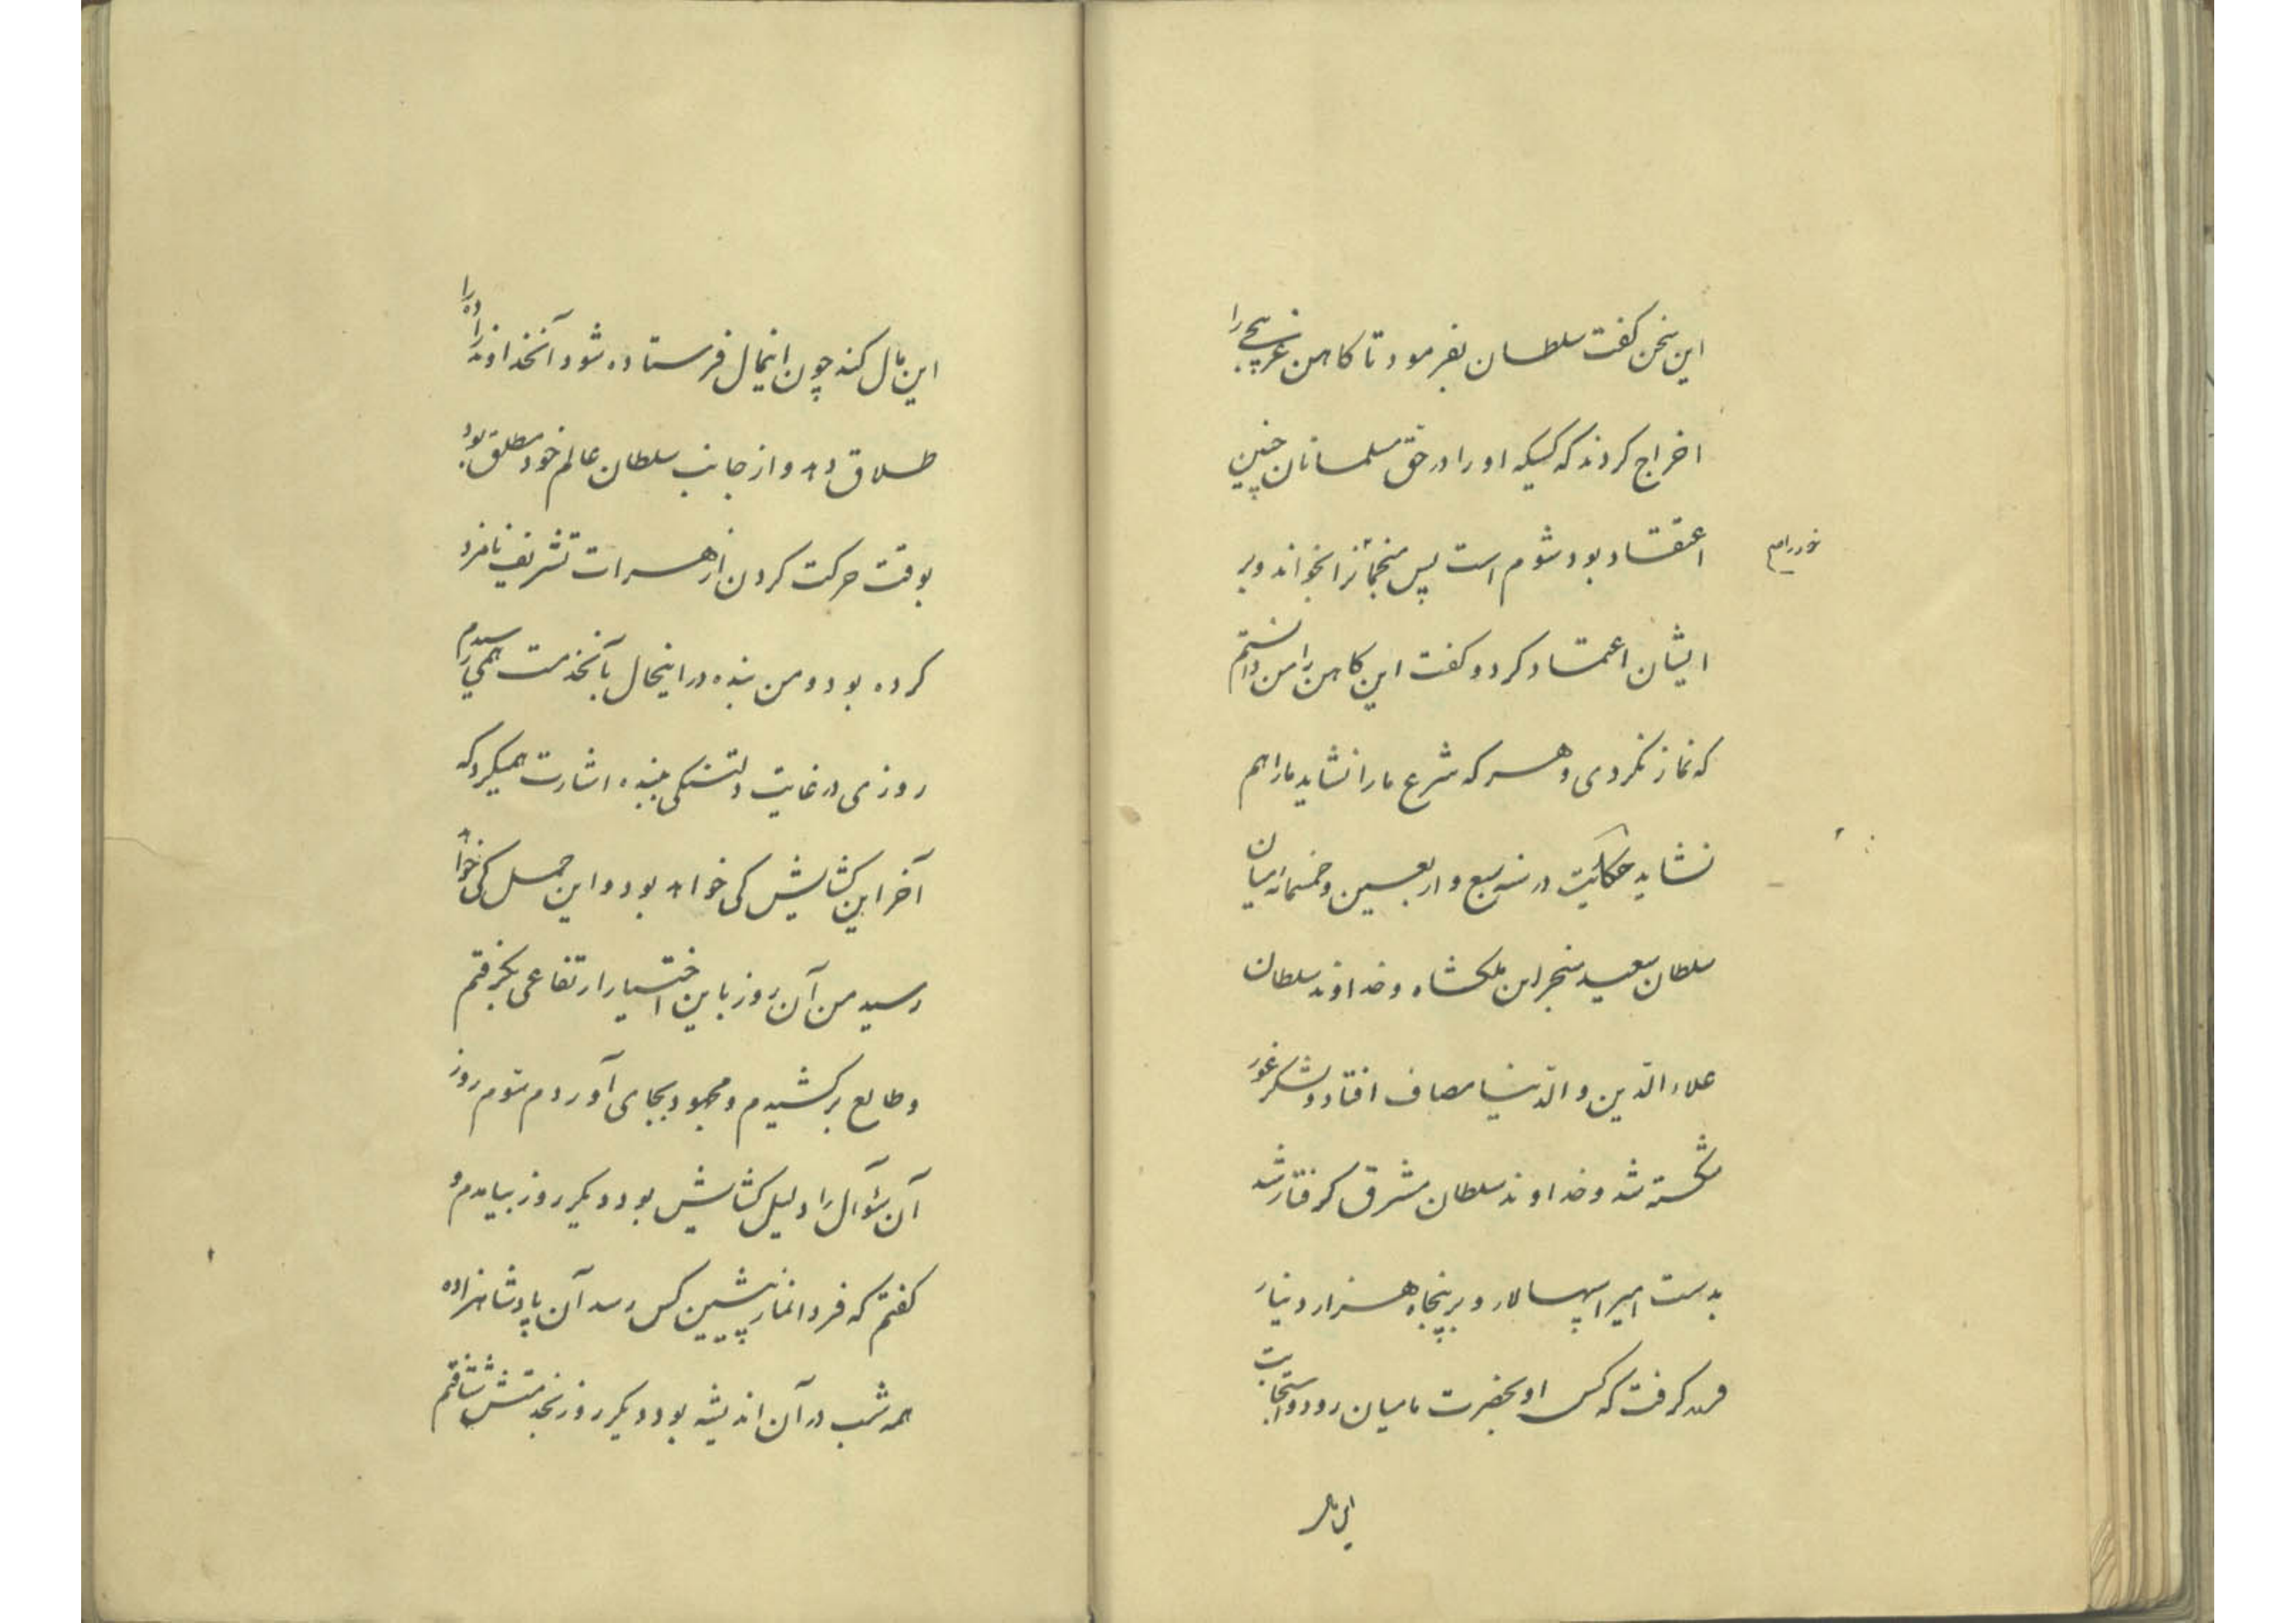 این سخن گفت سلطان بفرمود تا کاهن غزنیچی را
اخراج کردند که کسیکه او را در حق مسلمانان چنین
اعتقاد بود شوم است پس منجمانرا بخواند و بر
ایشان اعتماد کرد و گفت این کاهن را من دانستم
که نماز نکردی و هر که شرع ما را نشاید ما را هم
نشاید حکایت در سنه سبع و اربعین و خمسمائه میان
سلطان سعید سنجر ابن ملکشاه و خداوند سلطان
علاء الدین و الدنیا مصاف افتاد و لشکر غور
شکسته شد و خداوند سلطان مشرق گرفتار شد
بدست امیر اسپهسالار و بر پنجاه هزار دینار
گرفت که کس او بحضرت بامیان رود و استحابت
این مال
این مال کند چون اینمال فرستاده شود آنخداوندزاده را
طلاق دهد و از جانب سلطان عالم خود مطلق بود
بوقت حرکت کردن از هرات تشریف نامزد
کرده بود و من بنده در اینحال بآنخدمت همی رسیدم
روزی در غایت دلتنگی ببنده اشارت همیکرد که
آخر این گشایش کی خواهد بود و این حمل کی خواهد
رسید من آن روز باین اختیار ارتفاعی بگرفتم
و طالع برکشیدم و مجهود بجای آوردم سوم روز
آن سؤال را دلیل گشایش بود دیگر روز بیامدم و
گفتم که فردا نماز پیشین کس رسد آن پادشاهزاده
همه شب در آن اندیشه بود دیگر روز بخدمتش شتافتم